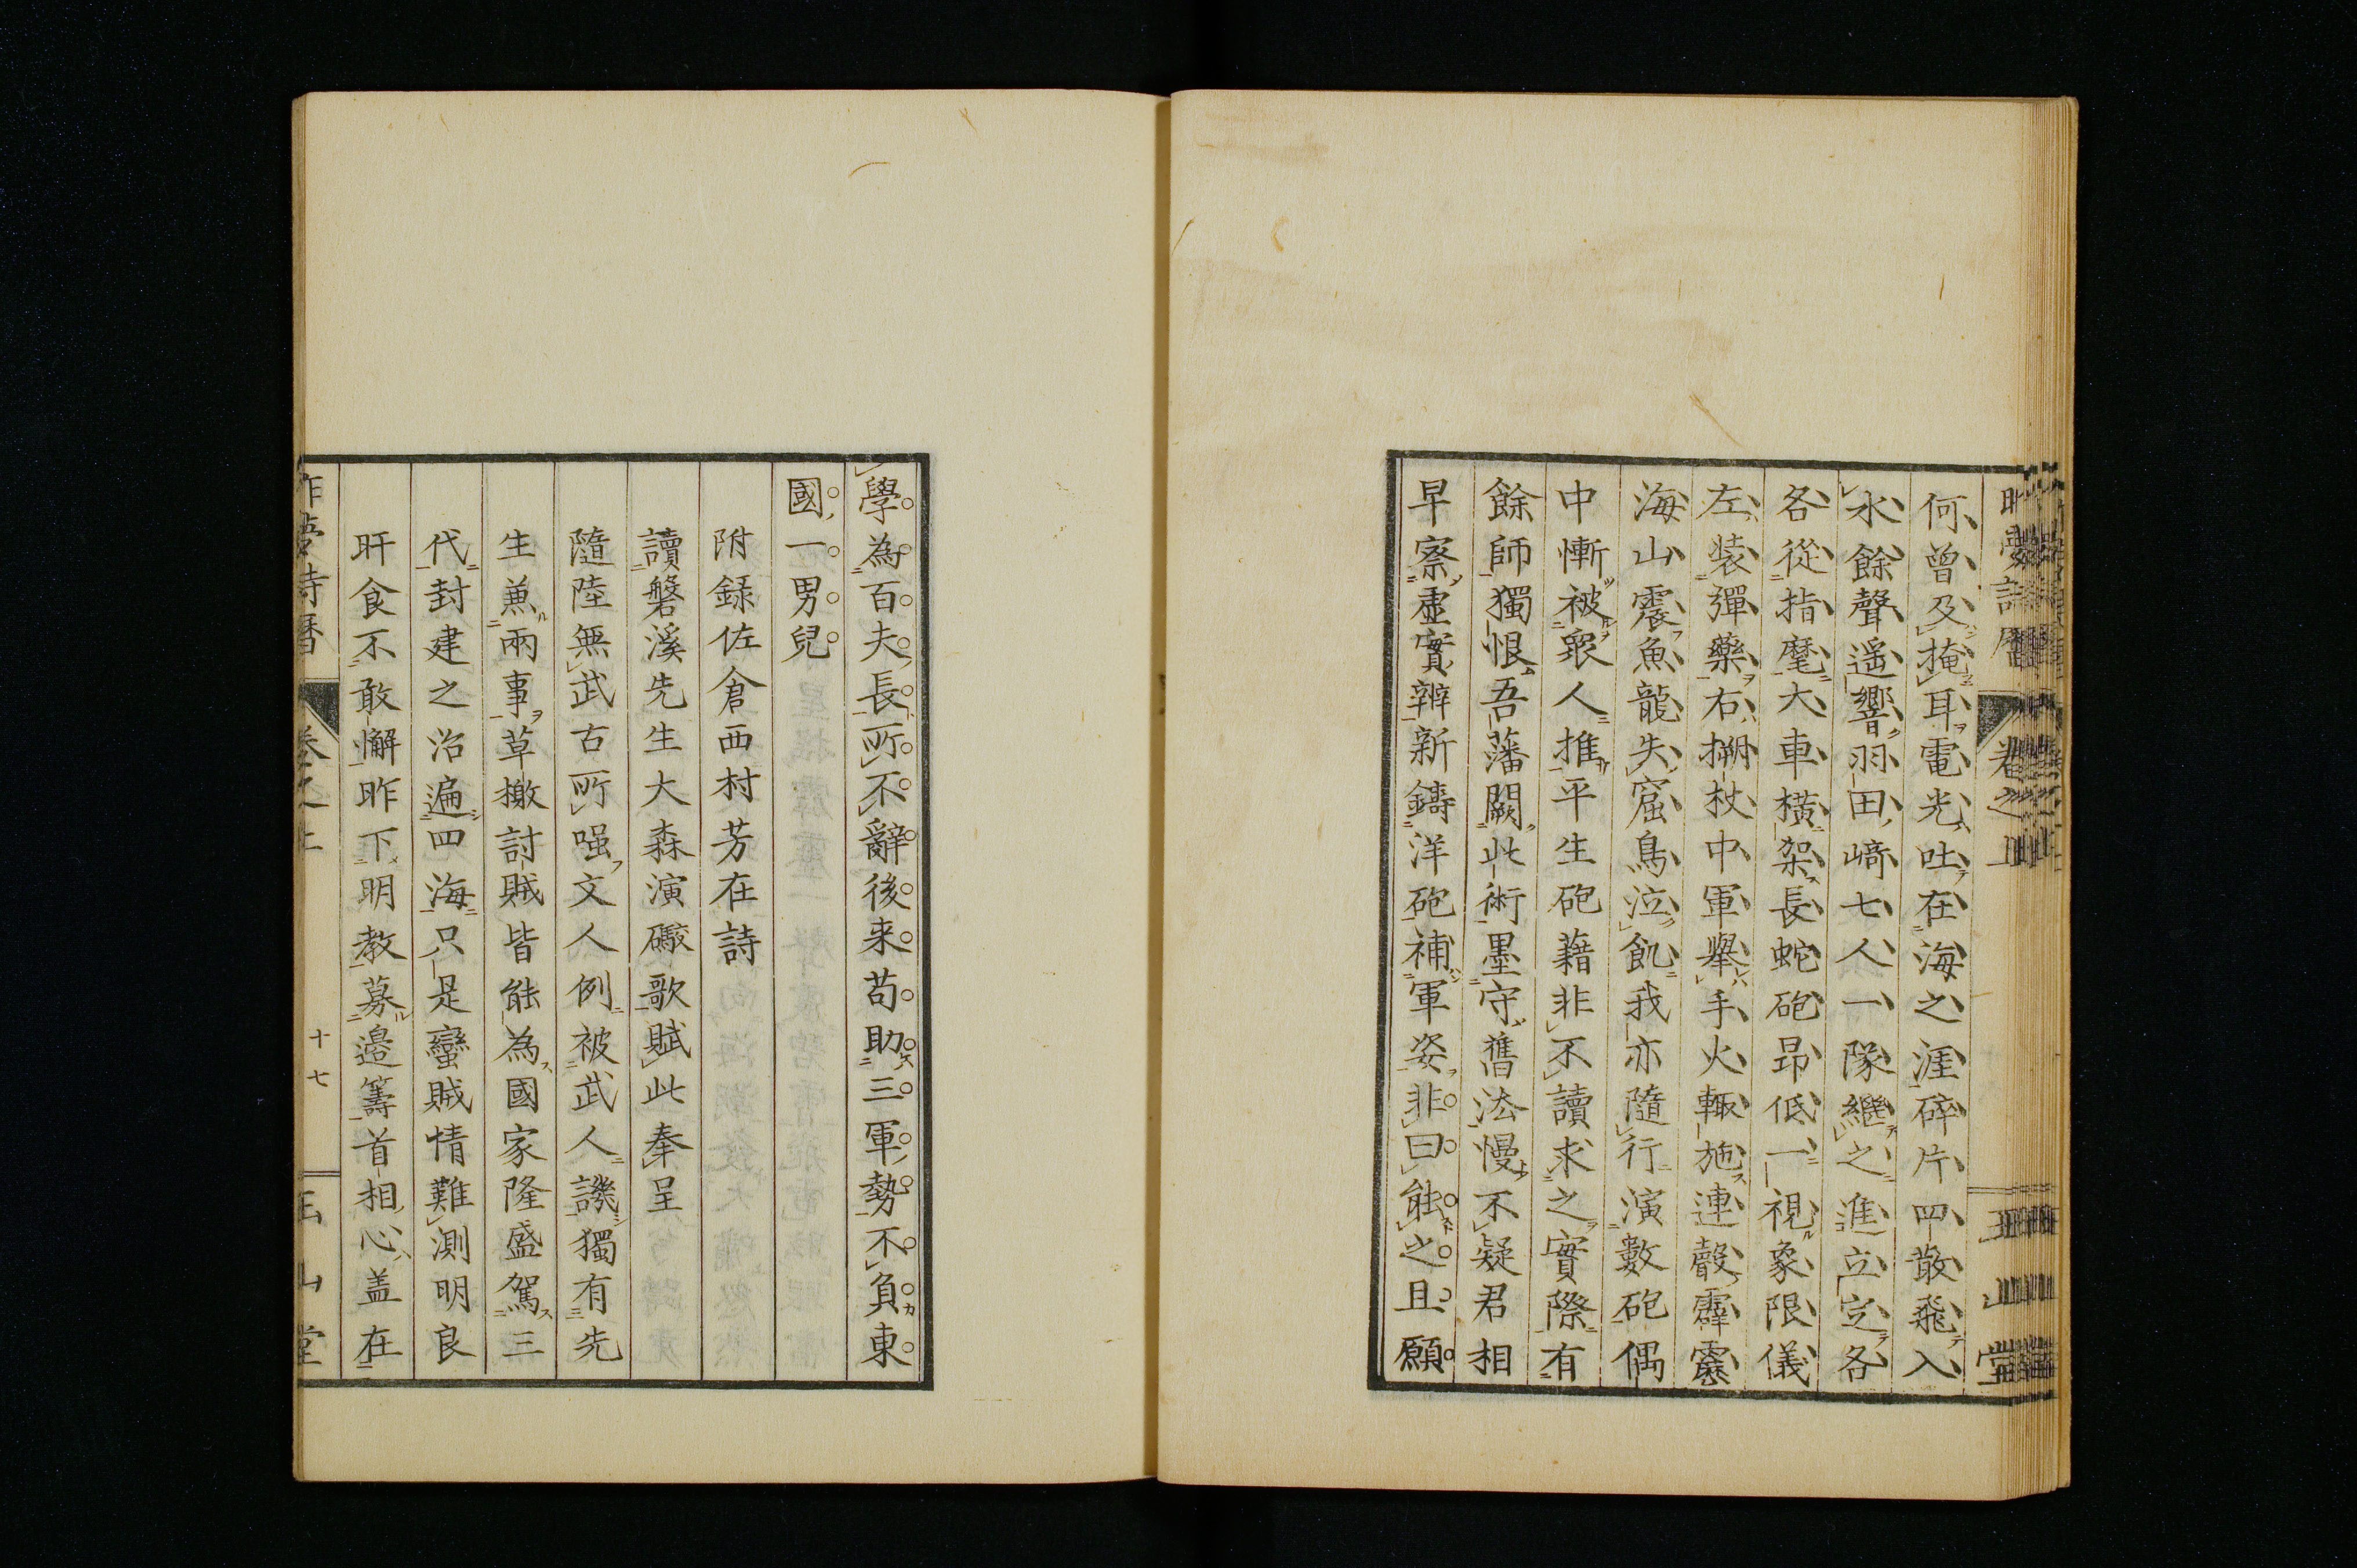 昨夢詩暦 卷之上 玉山堂
何曾及掩耳電光吐在海之涯碎片四散飛入
水餘聲遥響羽田崎七人一隊繼之進立定各
各從指麾大車橫架長蛇砲昂低一視象限儀
左裝彈藥右搠杖中軍擧手火輙施連聲霹靂
海山震魚龍失窟鳥泣飢我亦隨行演數砲偶
中慚被衆人推平生砲藉非不讀求之實際有
餘師獨恨吾藩闕此術墨守舊法慢不疑君相
早察虛實辨新鑄洋砲補軍姿非曰能之且願
學為百夫長所不辭後来苟助三軍勢不負東
國一男兒
附録佐倉西村芳在詩
讀磐溪先生大森演礮歌賦此奉呈
隨陸無武古所嗤文人例被武人譏獨有先
生兼兩事草檄討賊皆能為國家隆盛駕三
代封建之治遍四海只是蠻賊情難測明良
旰食不敢懈昨下明教募邉籌首相心盖在
昨夢詩暦 卷之上 十七 玉山堂